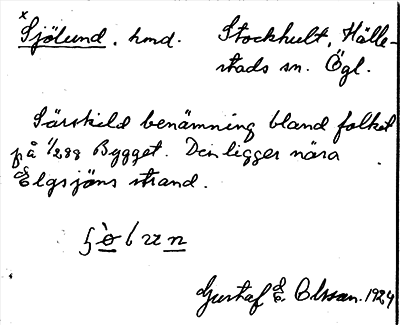 x Sjölund. hmd. Stockhult, Hälle-
stads sn. Ögl.
Särskild benämning bland folket
på 1/288 Bygget. Den ligger nära
Elgsjöns strand.
Gustaf E. Olsson. 1924